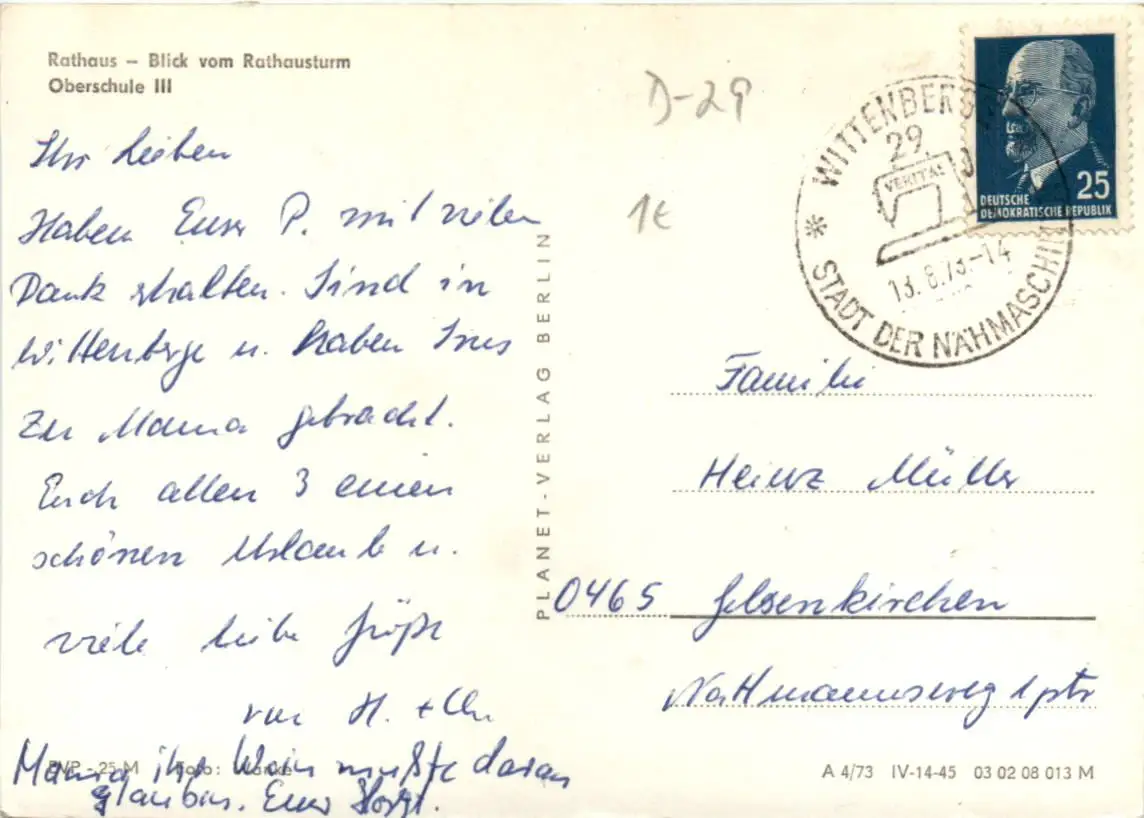 Rathaus – Blick vom Rathausturm
Oberschule III
D-29
1€
WITTENBERG
29
VERITAS
13.8.73.-14
* STADT DER NÄHMASCHIN
25
DEUTSCHE
DEMOKRATISCHE REPUBLIK
Ihr Lieben
Haben Euer P. mit vielen
Dank erhalten. Sind in
Wittenberge u. haben Ines
zu Mama gebracht.
Euch allen 3 einen
schönen Urlaub u.
viele liebe Grüße
von H.
Mama ihr Wein mußte daran
glauben. Euer Horst.
PLANET-VERLAG BERLIN
Familie
Heinz Müller
0465 Gelsenkirchen
Nattmannsweg 1 ptr
PVP - 25 M Foto:
A 4/73 IV-14-45 03 02 08 013 M